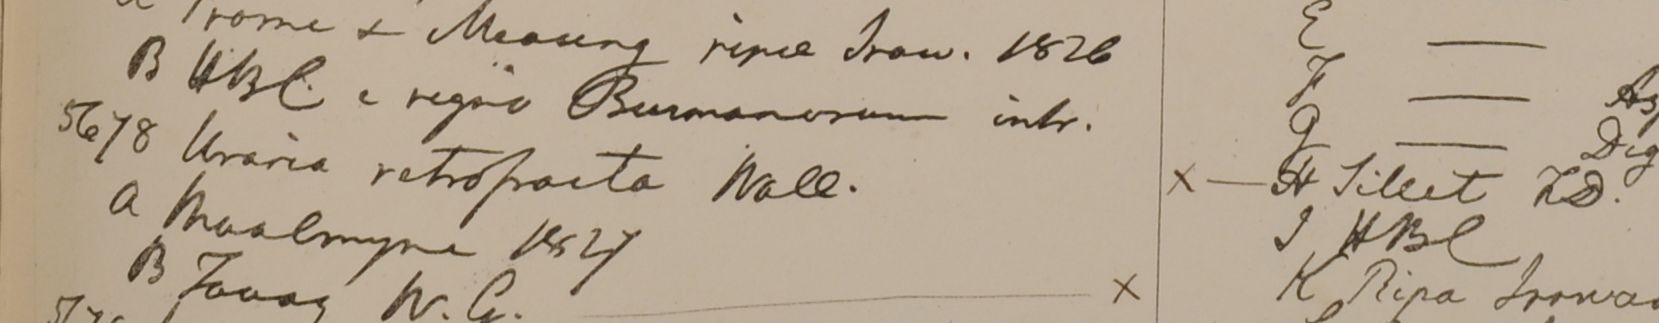 Prome & Meaong ripae Iraw. 1826
B HBC. e regno Burmanorum intr.
5678 Uraria retrofracta Wall.
a Moalmyne 1827
B Tavoy W.G.
X
E —
F —
G —
X — H Sillet FD.
I HBC
K Ripa